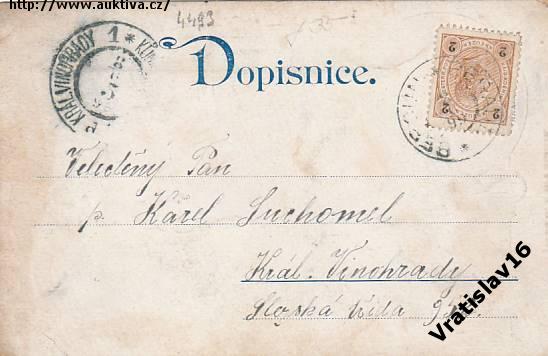 http://www.auktiva.cz/
4493
KRÁL. VINOHRADY 1 *
Dopisnice.
2 2
2 2
Veleděný Pan
p. Karel Suchomel
Král. Vinohrady
Slezská třída
Vratislav16